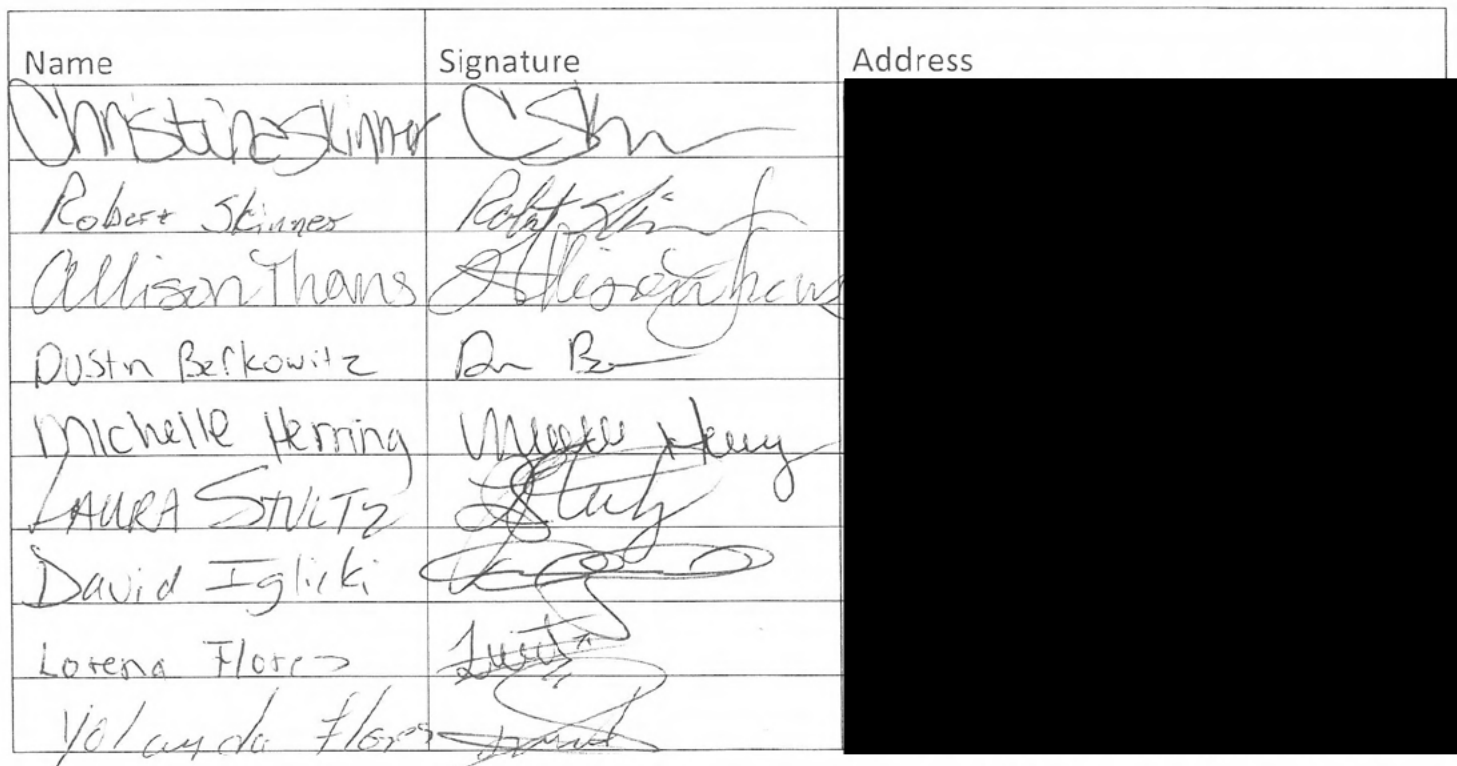 Name Signature Address
Christine Skinner CSk
Robert Skinner Robert Ski
Allison Thans Allison Thans
Dustin Berkowitz Du Be
Michelle Herring Michelle Herring
LAURA STULTZ Stultz
David Iglicki
Lorena Flores
Yolanda Flores